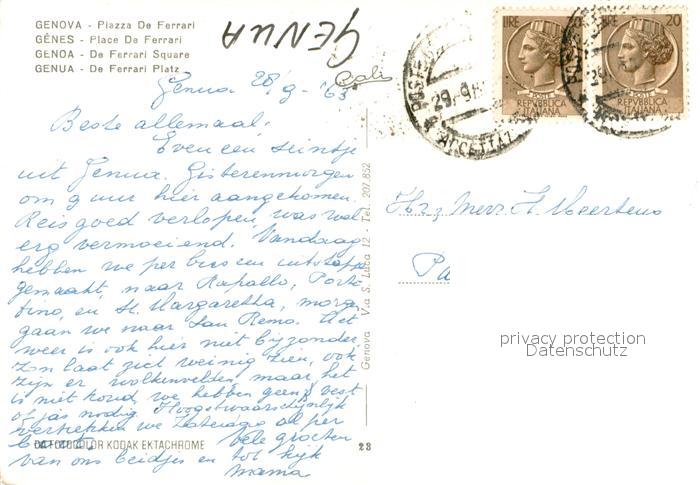 GENOVA - Piazza De Ferrari
GÊNES - Place De Ferrari
GENOA - De Ferrari Square
GENUA - De Ferrari Platz
GENUA
Genua 28-9-'63
Beste allemaal,
Even een seintje
uit Genua. Gisterenmorgen
om 9 uur hier aangekomen.
Reis goed verlopen, was wel
erg vermoeiend. Vandaag
hebben we per bus een uitstapje
gemaakt, naar Rapallo, Porto-
fino, en St. Margaretha, morgen
gaan we naar San Remo. Het
weer is ook hier niet bijzonder,
zon laat ziet weinig zien, ook
zijn er wolkenvelden, maar het
is niet koud, we hebben geen vest
of jas nodig. Hoogstwaarschijnlijk
vertrekken we Zaterdag al per
Vele groeten
van ons beidjes en tot kijk
mama
DA FOTOCOLOR KODAK EKTACHROME
23
Genova Via S. Luca 12 - Tel. 207.852
LIRE 20
LIRE 20
POSTE
REPVBBLICA
ITALIANA
REPVBBLICA
ITALIANA
29-9-6
ACCETTAZ
29
Mevr. H. Meertens
Pa
privacy protection
Datenschutz